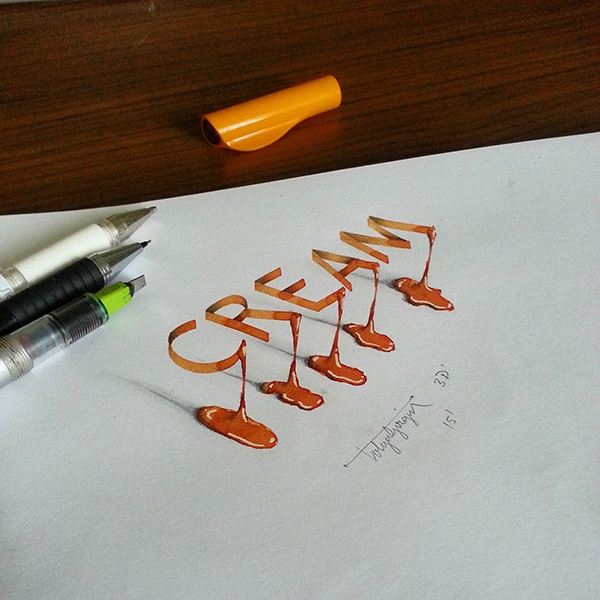 CREAM
tolgagirgin
3D'
'15'